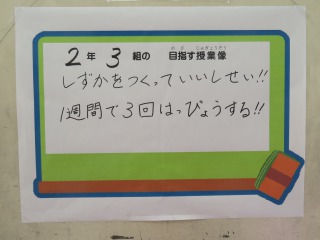 2年 3組の 目指す授業像
しずかをつくっていいしせい!!
1週間で3回はっぴょうする!!